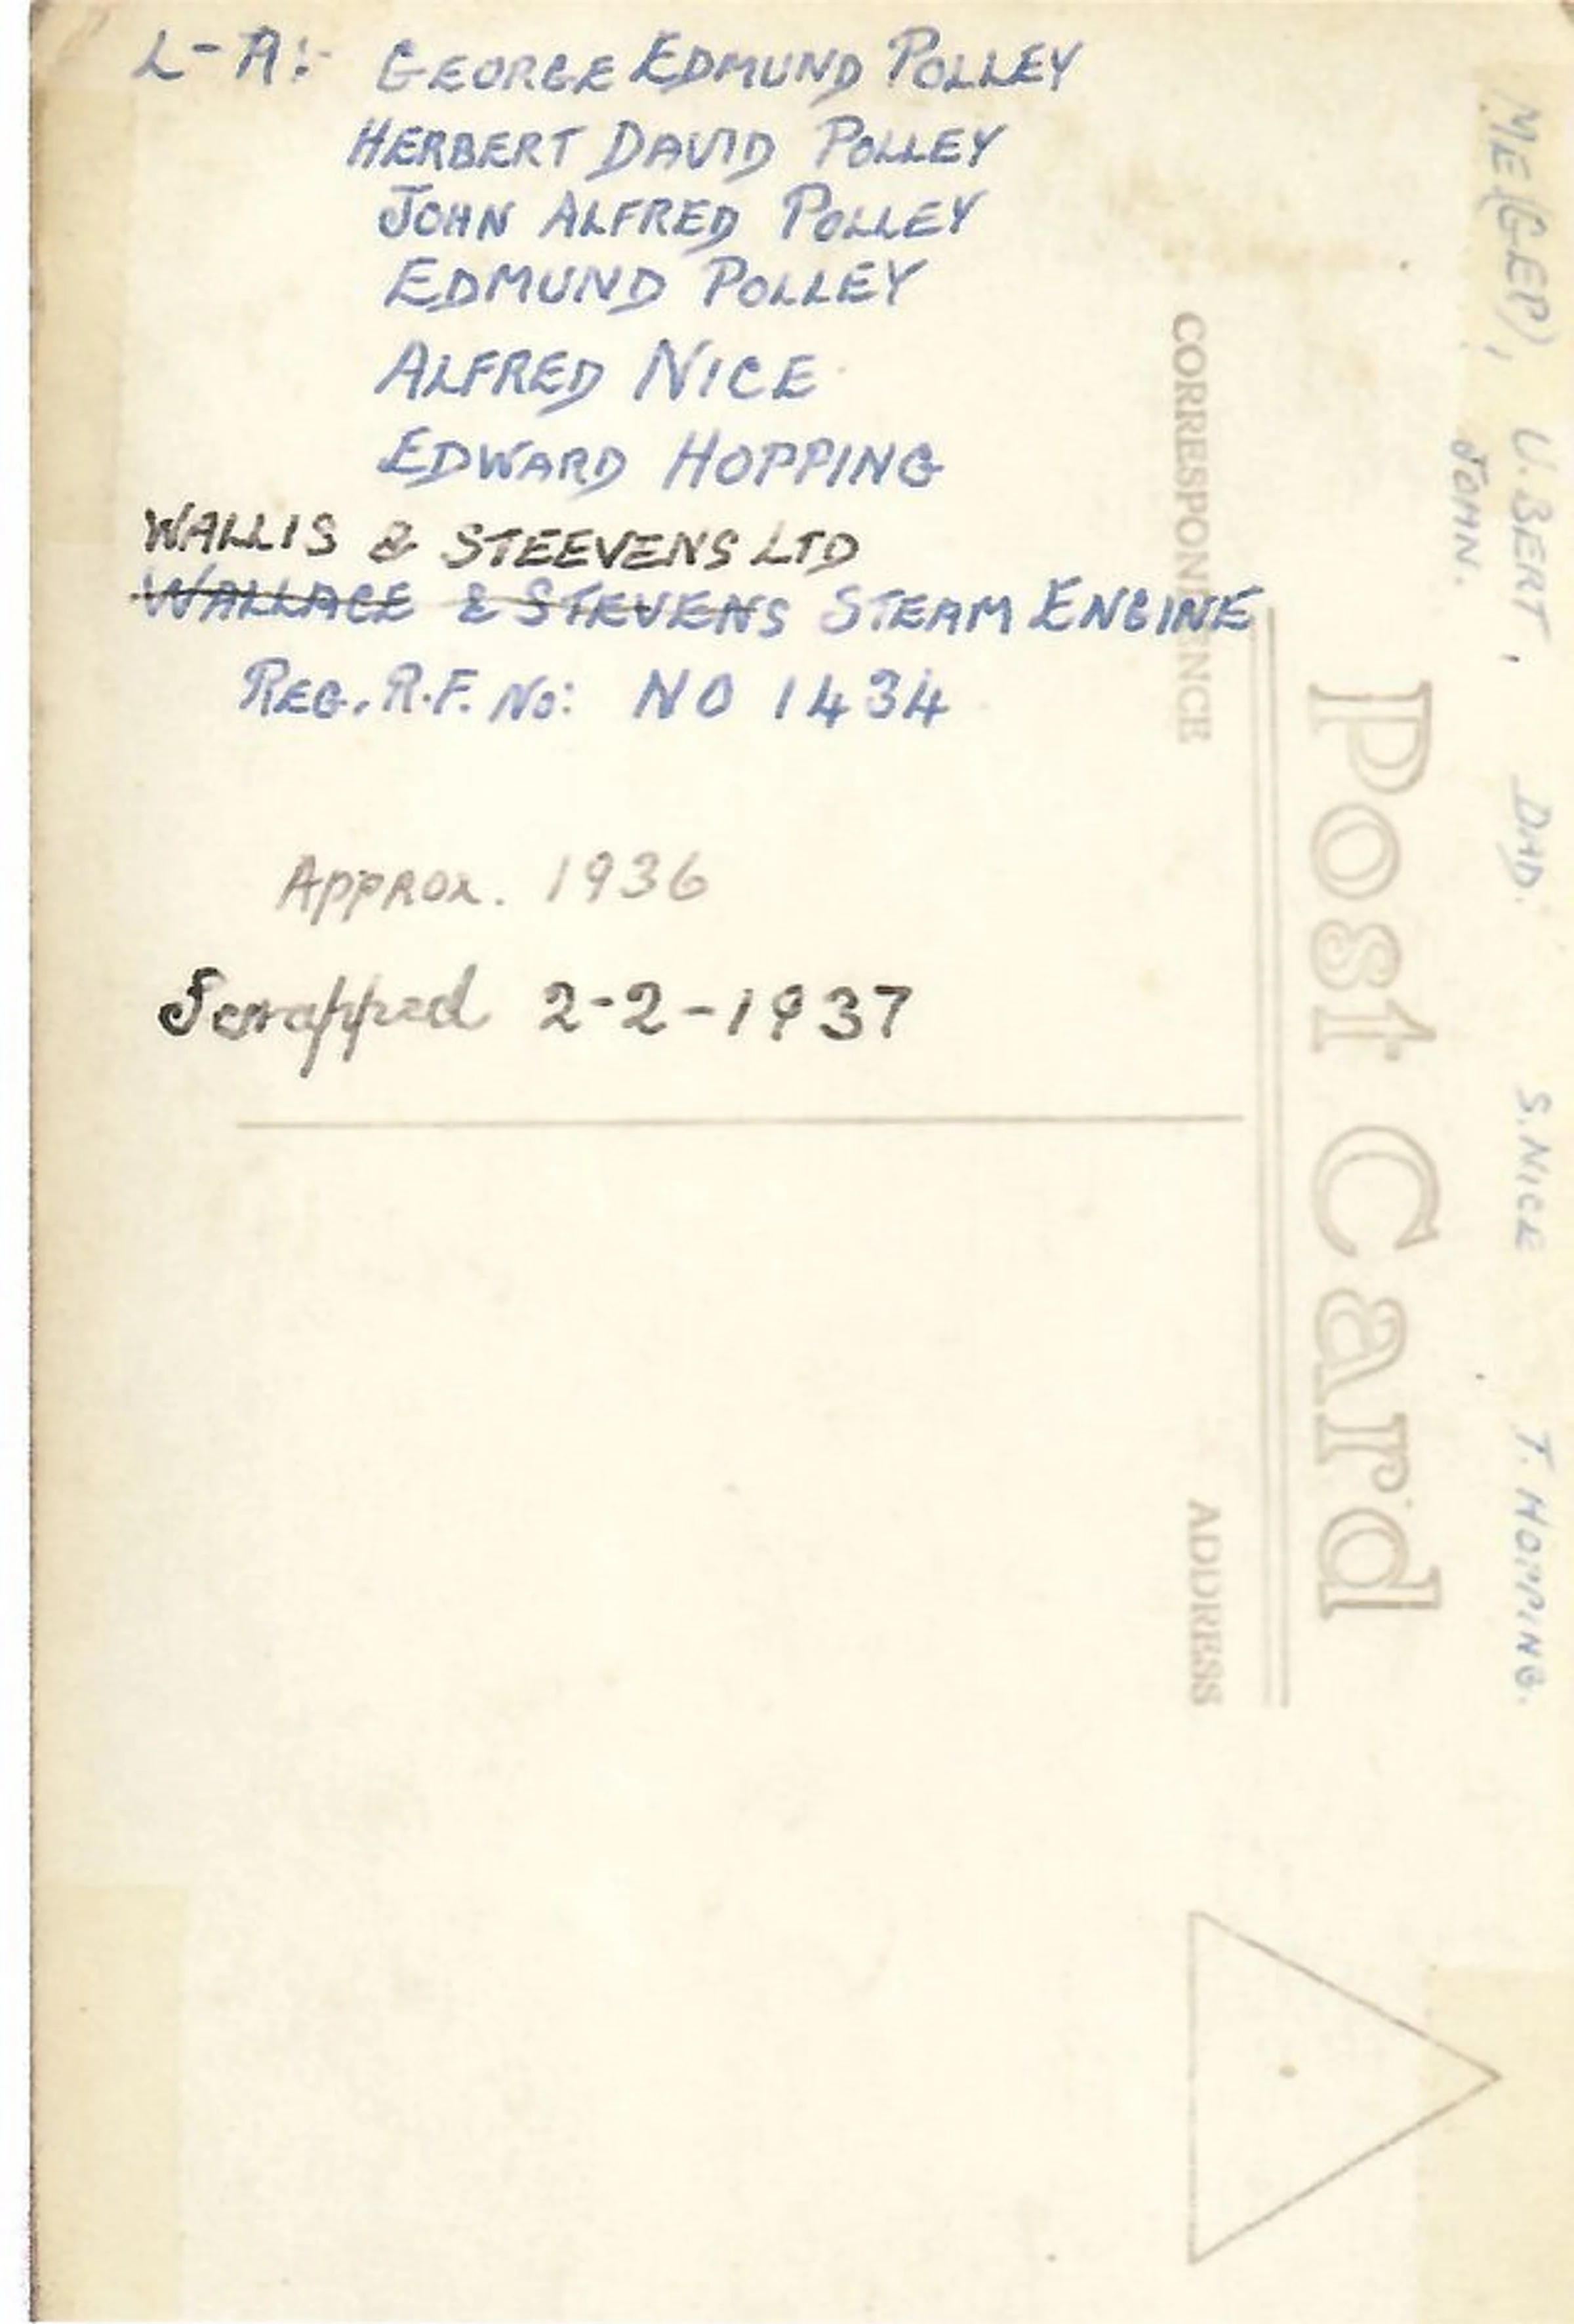 L-R:- GEORGE EDMUND POLLEY
HERBERT DAVID POLLEY
JOHN ALFRED POLLEY
EDMUND POLLEY
ALFRED NICE
EDWARD HOPPING
WALLIS & STEEVENS LTD
WALLACE & STEVENS STEAM ENGINE
REG. R.F. No: NO 1434
APPROX. 1936
Scrapped 2-2-1937
ME (GEP), U. BERT, DAD. S. NICE T. HOPPING.
JOHN.
Post Card
CORRESPONDENCE
ADDRESS